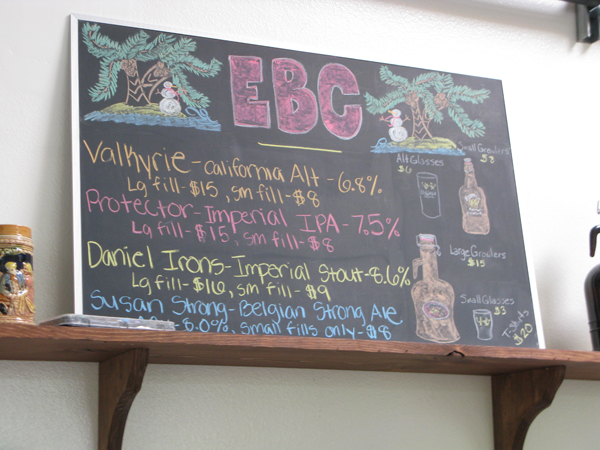 EBC
Valkyrie - California Alt - 6.8%
Lg fill - $15, sm fill - $8
Protector - Imperial IPA - 7.5%
Lg fill - $15, sm fill - $8
Daniel Irons - Imperial Stout - 8.6%
Lg fill - $16, sm fill - $9
Susan Strong - Belgian Strong Ale
8.0%, small fills only - $8
Alt Glasses
$6
Small Growlers
$3
Large Growlers
$15
Small Glasses
$3
$20